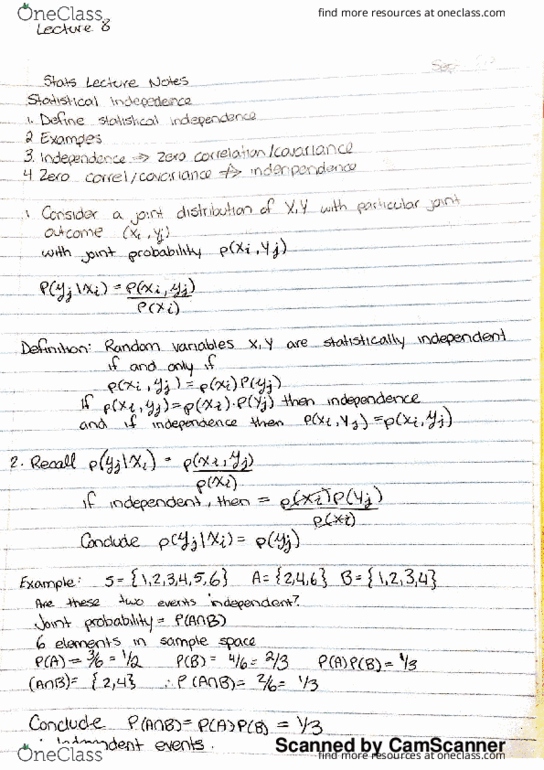 OneClass find more resources at oneclass.com
Lecture 8
Stats Lecture Notes
Statistical Indepedence
1. Define statistical independence
2 Examples
3. Independence => Zero correlation/covariance
4 Zero correl/covariance ≠> independence
1 Consider a joint distribution of X,Y with particular joint
outcome (xi, yj)
with joint probability p(xi, yj)
P(yj|xi) = p(xi, yj)
p(xi)
Definition: Random variables X,Y are statistically independent
if and only if
p(xi, yj) = p(xi)P(yj)
If p(xi, yj) = p(xi)·P(yj) then independence
and if independence then p(xi, yj) = p(xi, yj)
2. Recall p(yj|xi) = p(xi, yj)
p(xi)
if independent, then = p(xi)p(yj)
p(xi)
Conclude p(yj|xi) = p(yj)
Example: S = {1,2,3,4,5,6} A = {2,4,6} B = {1,2,3,4}
Are these two events independent?
Joint probability = P(A∩B)
6 elements in sample space
P(A) = 3/6 = 1/2 P(B) = 4/6 = 2/3 P(A)P(B) = 1/3
(A∩B) = {2,4} ∴ P(A∩B) = 2/6 = 1/3
Conclude P(A∩B) = P(A)P(B) = 1/3
independent events.
Scanned by CamScanner
OneClass find more resources at oneclass.com